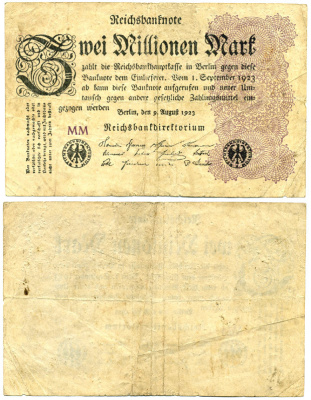 Reichsbanknote
Zwei Millionen Mark
zahlt die Reichsbankhauptkasse in Berlin gegen diese
Banknote dem Einlieferer. Vom 1. September 1923
ab kann diese Banknote aufgerufen und unter Um-
tausch gegen andere gesetzliche Zahlungsmittel ein-
gezogen werden
Berlin, den 9. August 1923
MM
Reichsbankdirektorium